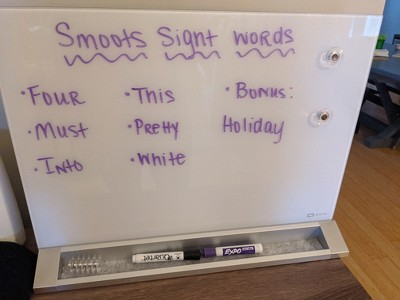 Smoots Sight words
• Four
• Must
• Into
• This
• Pretty
• White
• Bonus:
Holiday
EXPO